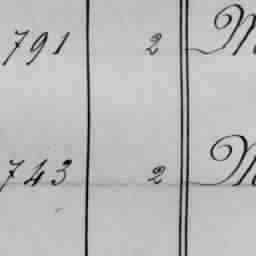 791 2 M
743 2 M